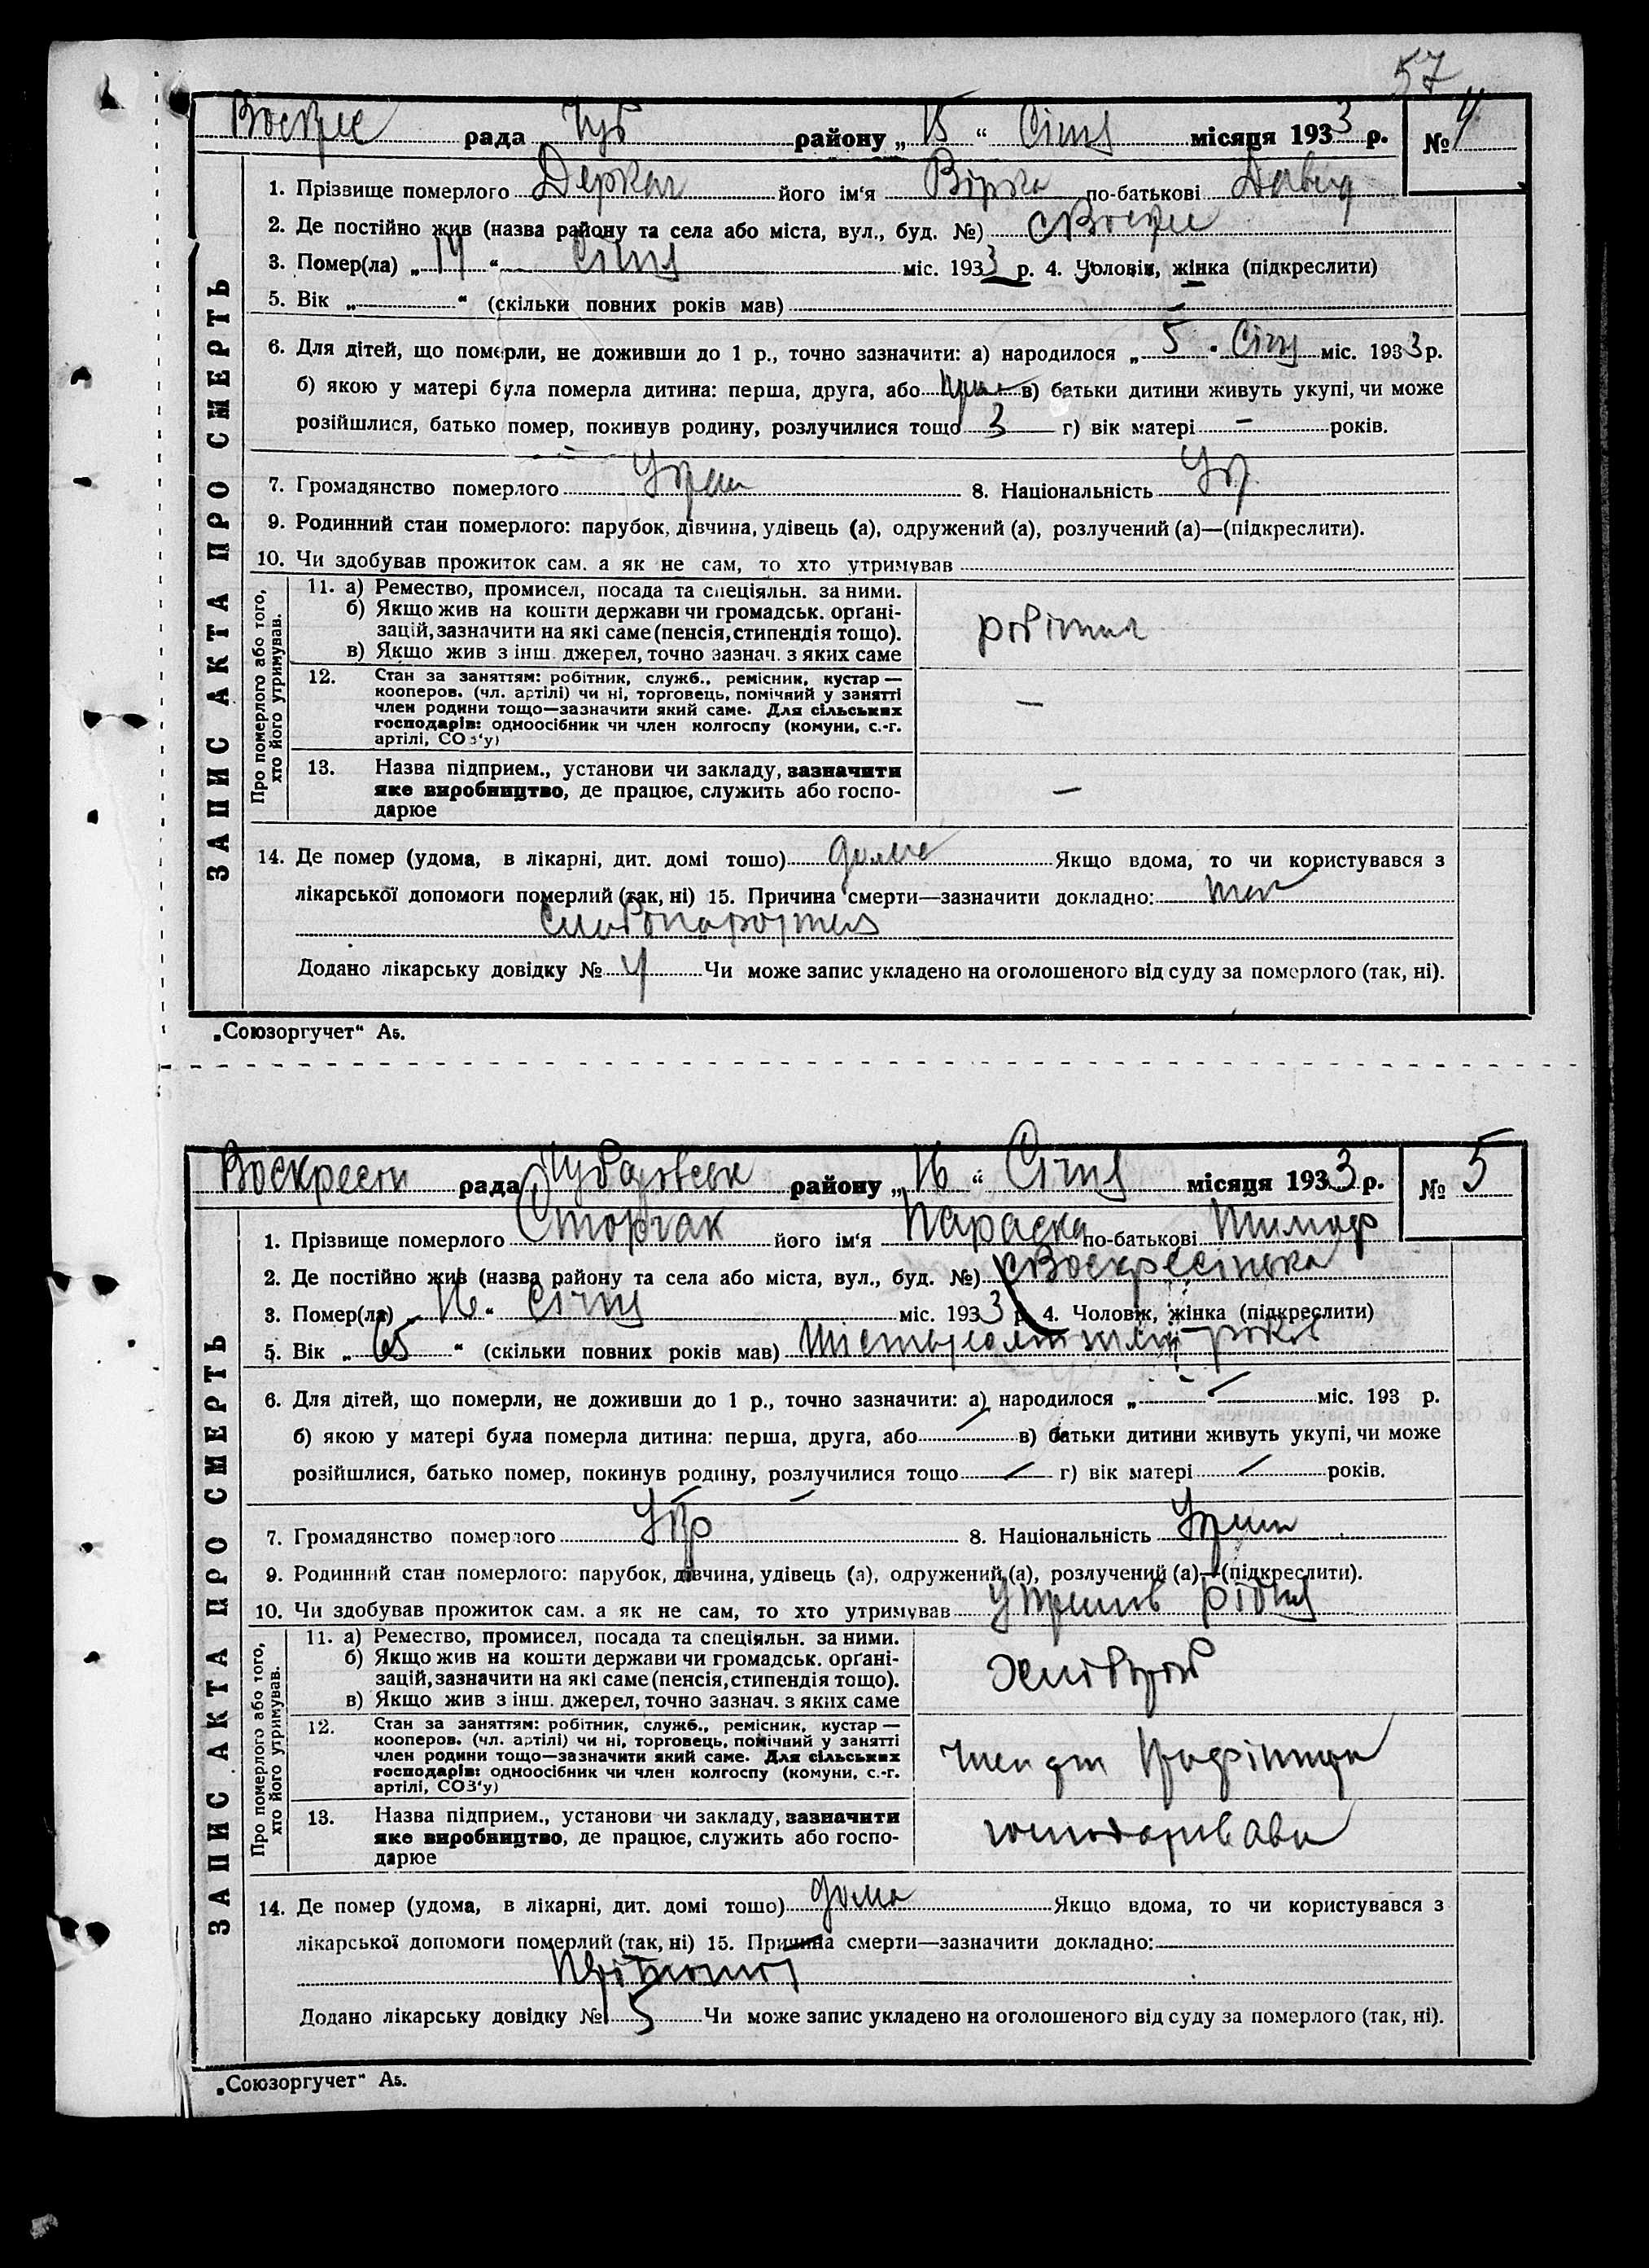 57
Воскрес рада Чуб району „15“ Січня місяця 1933 р. № 4
ЗАПИС АКТА ПРО СМЕРТЬ
1. Прізвище померлого Деркач його ім'я Вірка по-батькові Давид
2. Де постійно жив (назва району та села або міста, вул., буд. №) с Воскре
3. Помер(ла) „14“ Січня міс. 1933 р. 4. Чоловік, жінка (підкреслити)
5. Вік „ “ (скільки повних років мав)
6. Для дітей, що померли, не доживши до 1 р., точно зазначити: а) народилося „5“ Січня міс. 1933 р.
б) якою у матері була померла дитина: перша, друга, або в) батьки дитини живуть укупі, чи може
розійшлися, батько помер, покинув родину, розлучилися тощо 3 г) вік матері – років.
7. Громадянство померлого 8. Національність Укр
9. Родинний стан померлого: парубок, дівчина, удівець (а), одружений (а), розлучений (а)—(підкреслити).
10. Чи здобував прожиток сам, а як не сам, то хто утримував
Про померлого або того, хто його утримував.
11. а) Ремество, промисел, посада та спеціяльн. за ними.
б) Якщо жив на кошти держави чи громадськ. орґані-
зацій, зазначити на які саме (пенсія, стипендія тощо).
в) Якщо жив з інш. джерел, точно зазнач. з яких саме
12. Стан за заняттям: робітник, служб., ремісник, кустар —
кооперов. (чл. артілі) чи ні, торговець, помічний у занятті
член родини тощо—зазначити який саме. Для сільських
господарів: одноосібник чи член колгоспу (комуни, с.-г.
артілі, СОЗ'у)
–
13. Назва підприєм., установи чи закладу, зазначити
яке виробництво, де працює, служить або госпо-
дарює
–
14. Де помер (удома, в лікарні, дит. домі тощо) дома Якщо вдома, то чи користувався з
лікарської допомоги померлий (так, ні) 15. Причина смерти—зазначити докладно:
Додано лікарську довідку № 4 Чи може запис укладено на оголошеного від суду за померлого (так, ні).
„Союзоргучет“ А5.
Воскресен рада Чубарівськ району „16“ Січня місяця 1933 р. № 5
ЗАПИС АКТА ПРО СМЕРТЬ
1. Прізвище померлого Сторчак його ім'я Параска по-батькові Тимоф
2. Де постійно жив (назва району та села або міста, вул., буд. №) с Воскресінька
3. Помер(ла) „16“ Січня міс. 1933 р. 4. Чоловік, жінка (підкреслити)
5. Вік „65“ (скільки повних років мав) років
6. Для дітей, що померли, не доживши до 1 р., точно зазначити: а) народилося „ – міс. 193 р.
б) якою у матері була померла дитина: перша, друга, або – в) батьки дитини живуть укупі, чи може
розійшлися, батько помер, покинув родину, розлучилися тощо – г) вік матері – років.
7. Громадянство померлого Укр 8. Національність
9. Родинний стан померлого: парубок, дівчина, удівець (а), одружений (а), розлучений (а)—(підкреслити).
10. Чи здобував прожиток сам, а як не сам, то хто утримував
Про померлого або того, хто його утримував.
11. а) Ремество, промисел, посада та спеціяльн. за ними.
б) Якщо жив на кошти держави чи громадськ. орґані-
зацій, зазначити на які саме (пенсія, стипендія тощо).
в) Якщо жив з інш. джерел, точно зазнач. з яких саме
Хлібороб
12. Стан за заняттям: робітник, служб., ремісник, кустар —
кооперов. (чл. артілі) чи ні, торговець, помічний у занятті
член родини тощо—зазначити який саме. Для сільських
господарів: одноосібник чи член колгоспу (комуни, с.-г.
артілі, СОЗ'у)
13. Назва підприєм., установи чи закладу, зазначити
яке виробництво, де працює, служить або госпо-
дарює
14. Де помер (удома, в лікарні, дит. домі тощо) дома Якщо вдома, то чи користувався з
лікарської допомоги померлий (так, ні) 15. Причина смерти—зазначити докладно:
Додано лікарську довідку № 5 Чи може запис укладено на оголошеного від суду за померлого (так, ні).
„Союзоргучет“ А5.